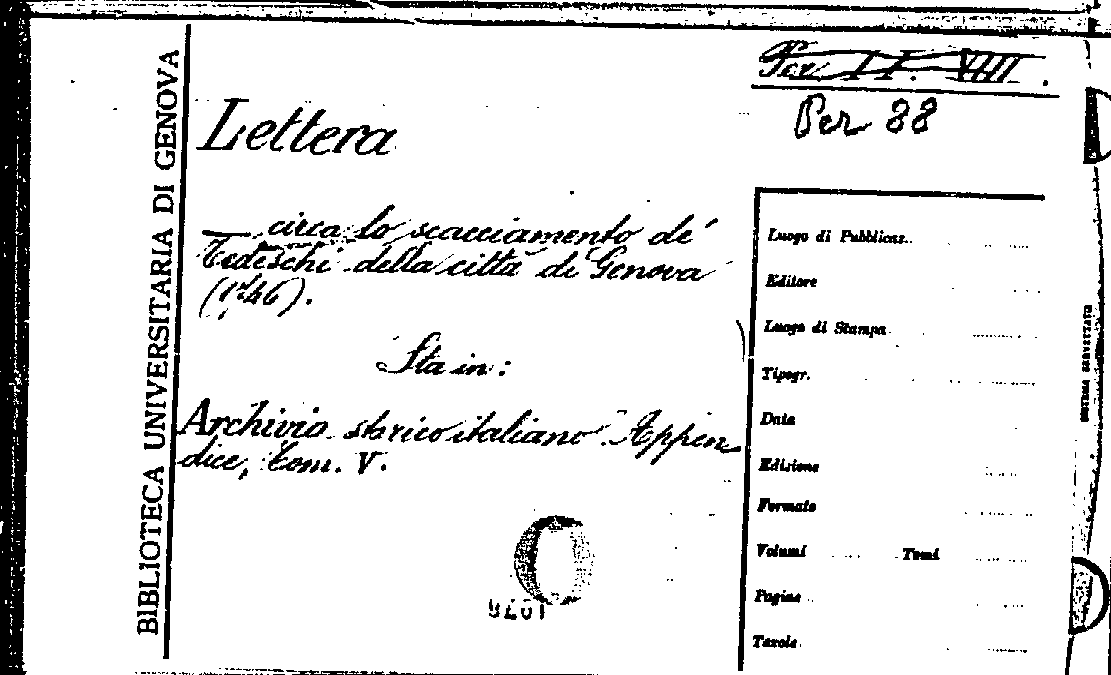 BIBLIOTECA UNIVERSITARIA DI GENOVA
Per. II. VIII.
Per 88
Lettera
— circa lo scacciamento de'
Tedeschi della città di Genova
(1746).
Sta in:
Archivio storico italiano. Appen
dice, tom. V.
Luogo di Pubblicaz.
Editore
Luogo di Stampa
Tipogr.
Data
Edizione
Formato
Volumi Tomi
Pagine
Tavole
SISTEMA SERVETTATO